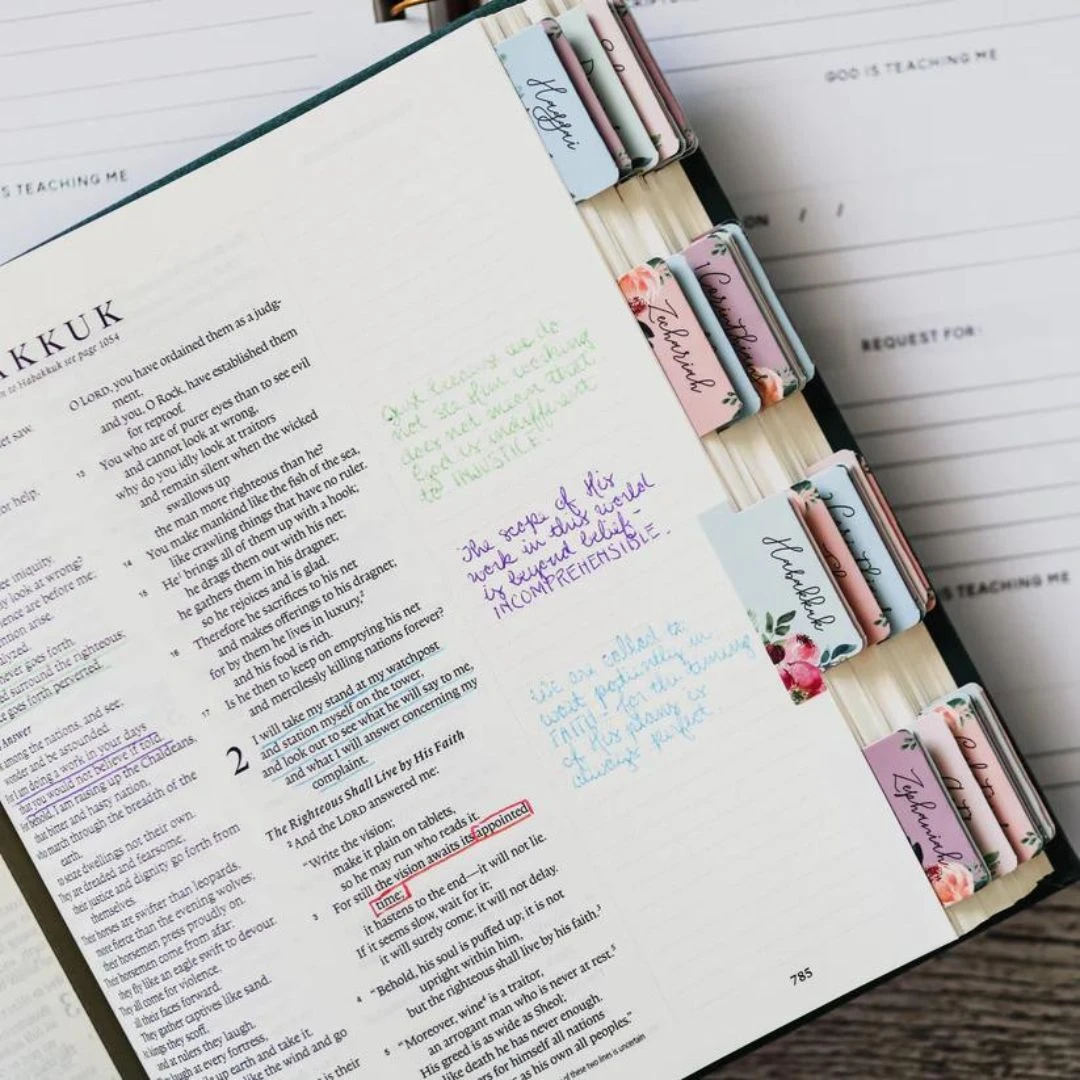 SCRIPTURE
GOD IS TEACHING ME
S TEACHING ME
ON / /
REQUEST FOR:
IS TEACHING ME
Haggai
Zechariah
Corinthians
Habakkuk
Zephaniah
AKKUK
to Habakkuk see page 1054
et saw.
or help,
ee iniquity,
y look at wrong?
ence are before me;
ention arise.
alyzed,
ever goes forth.
d surround the righteous;
e goes forth perverted.
Answer
among the nations, and see;
wonder and be astounded.
for I am doing a work in your days
that you would not believe if told.
for behold, I am raising up the Chaldeans,
that bitter and hasty nation,
who march through the breadth of the
earth,
to seize dwellings not their own.
They are dreaded and fearsome;
their justice and dignity go forth from
themselves.
Their horses are swifter than leopards,
more fierce than the evening wolves;
their horsemen press proudly on.
Their horsemen come from afar;
they fly like an eagle swift to devour.
They all come for violence,
all their faces forward.
They gather captives like sand.
At kings they scoff,
and at rulers they laugh.
They laugh at every fortress,
up earth and take it.
like the wind and go
is their
O LORD, you have ordained them as a judg-
ment,
and you, O Rock, have established them
for reproof.
13 You who are of purer eyes than to see evil
and cannot look at wrong,
why do you idly look at traitors
and remain silent when the wicked
swallows up
the man more righteous than he?
14 You make mankind like the fish of the sea,
like crawling things that have no ruler.
15 He¹ brings all of them up with a hook;
he drags them out with his net;
he gathers them in his dragnet;
so he rejoices and is glad.
16 Therefore he sacrifices to his net
and makes offerings to his dragnet;
for by them he lives in luxury,²
and his food is rich.
17 Is he then to keep on emptying his net
and mercilessly killing nations forever?
2 I will take my stand at my watchpost
and station myself on the tower,
and look out to see what he will say to me,
and what I will answer concerning my
complaint.
The Righteous Shall Live by His Faith
2 And the LORD answered me:
"Write the vision;
make it plain on tablets,
so he may run who reads it.
3 For still the vision awaits its appointed
time;
it hastens to the end—it will not lie.
If it seems slow, wait for it;
it will surely come; it will not delay.
4 "Behold, his soul is puffed up; it is not
upright within him,
but the righteous shall live by his faith.³
5 "Moreover, wine⁴ is a traitor,
an arrogant man who is never at rest.⁵
His greed is as wide as Sheol;
like death he has never enough.
ers for himself all nations
as his own all peoples."
of these two lines is uncertain
Just because we do
not see Him working
does not mean that
God is indifferent
to INJUSTICE.
The scope of His
work in this world
is beyond belief-
INCOMPREHENSIBLE.
We are called to
wait patiently in
FAITH- for the timing
of His plans is
always perfect.
785